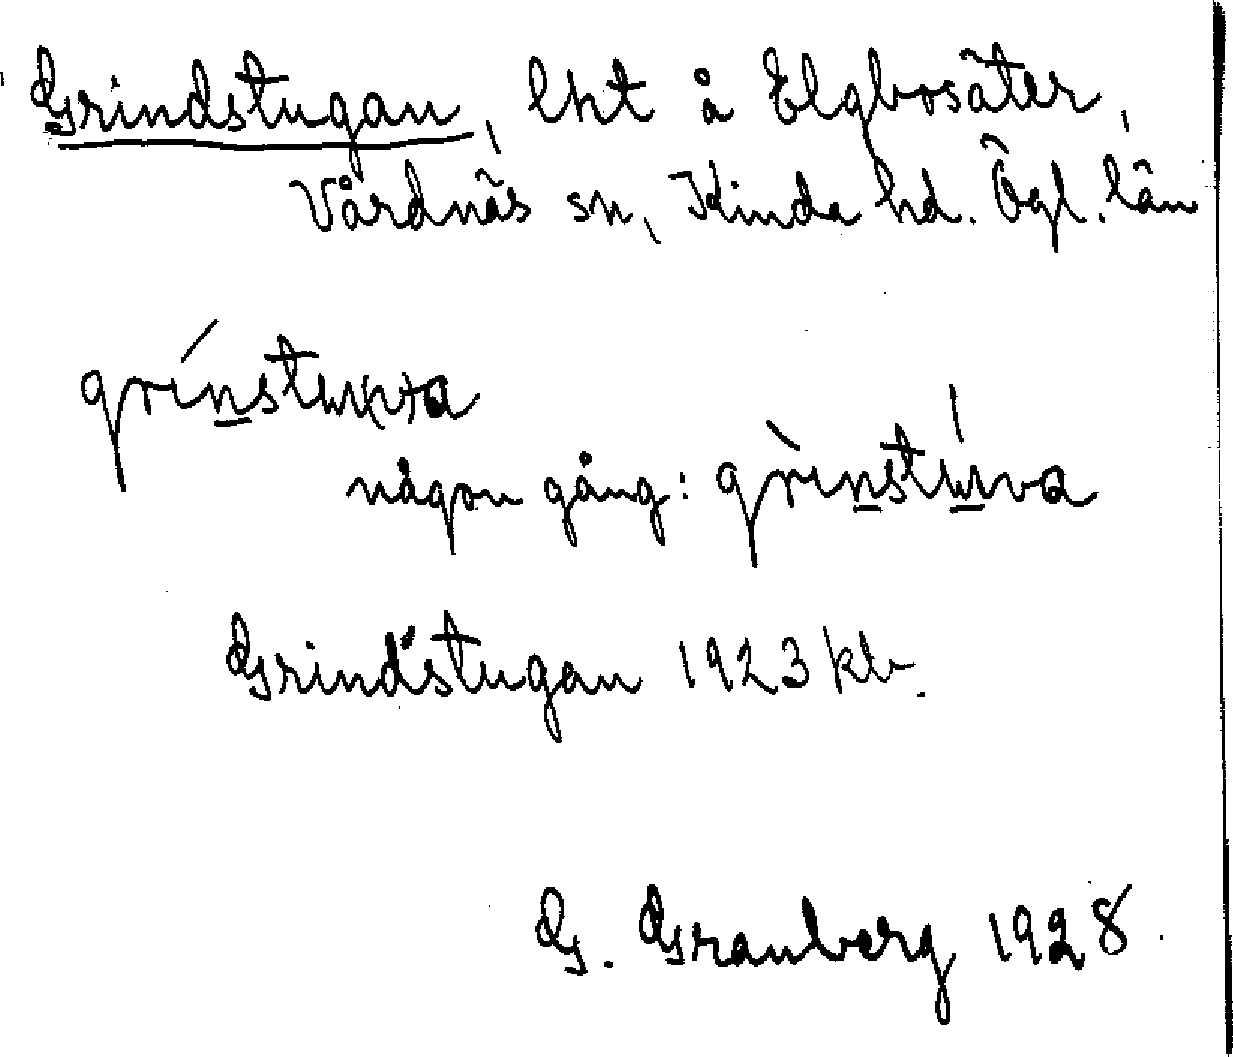 Grindstugan, lht å Elgbosäter,
Vårdnäs sn, Kinda hd. Ögl. län
grínstu(v)a
någon gång: grìnstúva
Grindstugan 1923 kb.
G. Granberg 1928.